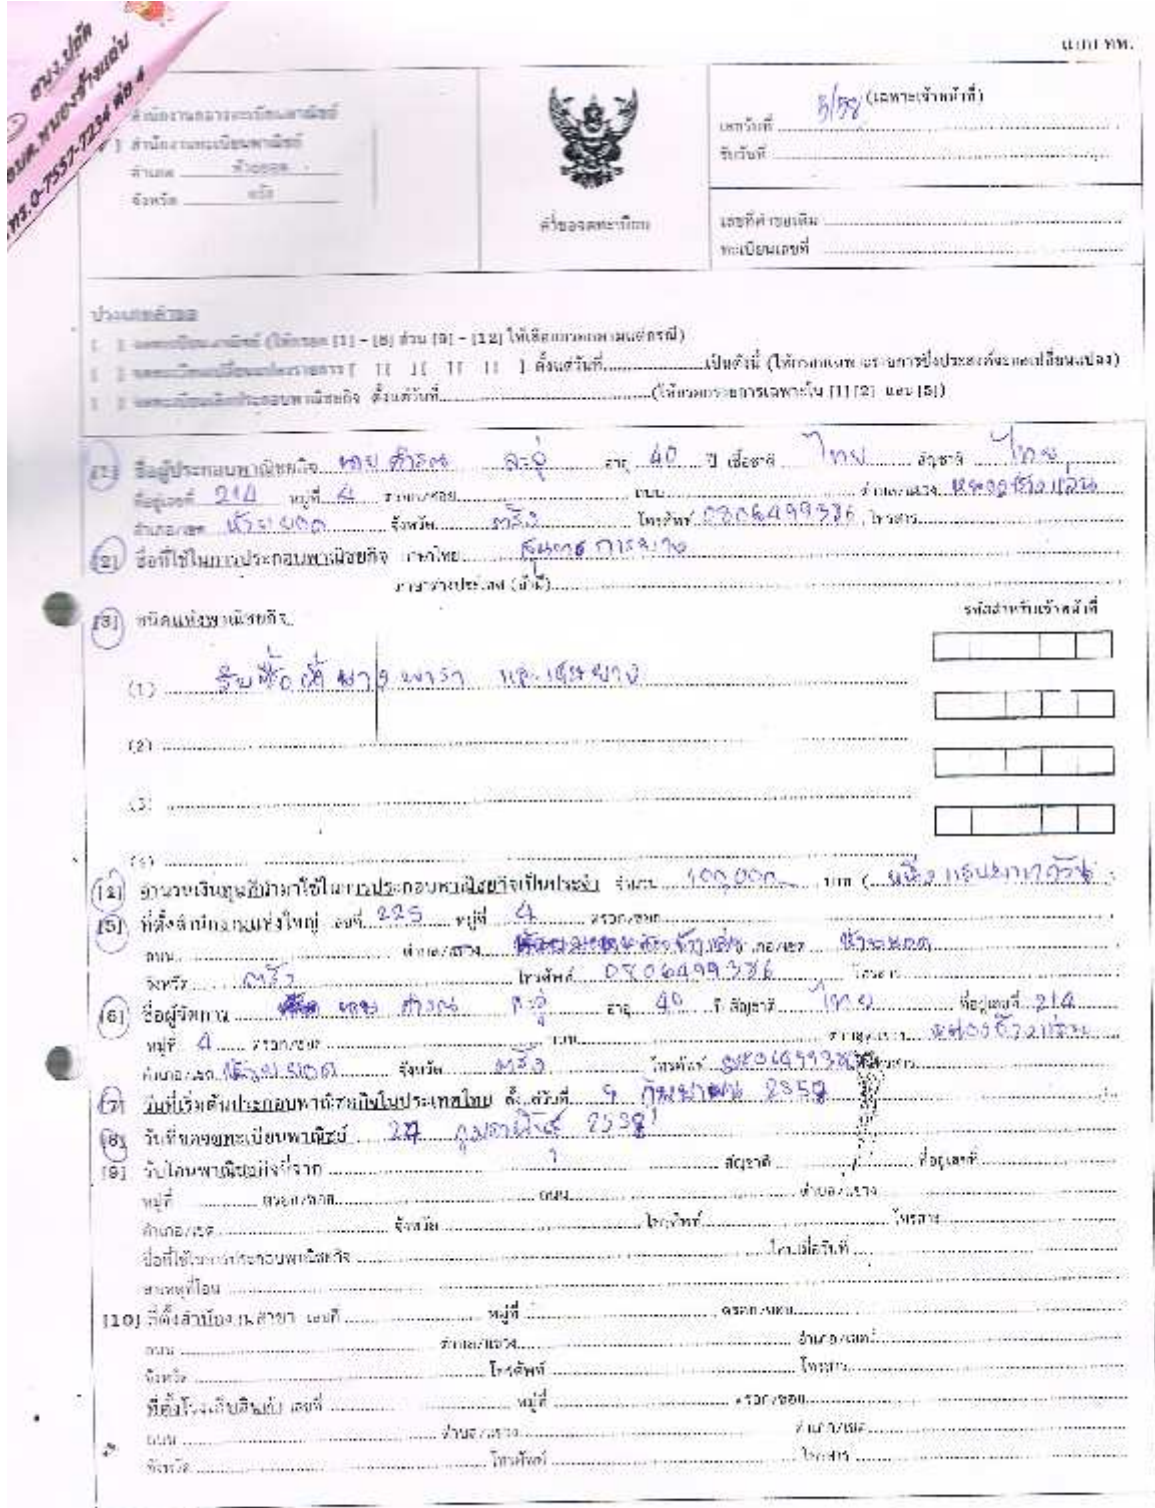 สนง.ปลัด
อบต.หนองช้างแล่น
โทร.0-7557-7234 ต่อ 4
แบบ ทพ.
สำนักงานกลางทะเบียนพาณิชย์
สำนักงานทะเบียนพาณิชย์
อำเภอ ห้วยยอด
จังหวัด ตรัง
คำขอจดทะเบียน
5/58 (เฉพาะเจ้าหน้าที่)
เลขรับที่
รับวันที่
เลขที่คำขอเดิม
ทะเบียนเลขที่
ประเภทคำขอ
[ ] จดทะเบียนพาณิชย์ (ให้กรอก [1] - [8] ส่วน [9] - [12] ให้เลือกกรอกตามแต่กรณี)
[ ] จดทะเบียนเปลี่ยนแปลงรายการ [ ] [ ] [ ] [ ] ตั้งแต่วันที่ เป็นดังนี้ (ให้กรอกเฉพาะรายการซึ่งประสงค์จะขอเปลี่ยนแปลง)
[ ] จดทะเบียนเลิกประกอบพาณิชยกิจ ตั้งแต่วันที่ (ให้กรอกรายการเฉพาะใน [1] [2] และ [5])
[1] ชื่อผู้ประกอบพาณิชยกิจ นาย อายุ 40 ปี เชื้อชาติ ไทย สัญชาติ ไทย
ที่อยู่เลขที่ 214 หมู่ที่ 4 ตรอก/ซอย ถนน ตำบล/แขวง หนองช้างแล่น
อำเภอ/เขต ห้วยยอด จังหวัด ตรัง โทรศัพท์ 0806499386 โทรสาร
[2] ชื่อที่ใช้ในการประกอบพาณิชยกิจ ภาษาไทย การยาง
ภาษาต่างประเทศ (ถ้ามี)
[3] ชนิดแห่งพาณิชยกิจ
รหัสสำหรับเจ้าหน้าที่
(1) รับซื้อ ยางพารา และเศษยาง
(2)
(3)
(4)
[4] จำนวนเงินทุนที่นำมาใช้ในการประกอบพาณิชยกิจเป็นประจำ จำนวน 100,000 บาท ( หนึ่งแสนบาทถ้วน
[5] ที่ตั้งสำนักงานแห่งใหญ่ เลขที่ 225 หมู่ที่ 4 ตรอก/ซอย
ถนน ตำบล/แขวง หนองช้างแล่น อำเภอ/เขต ห้วยยอด
จังหวัด ตรัง โทรศัพท์ 0806499386 โทรสาร
[6] ชื่อผู้จัดการ นาย อายุ 40 ปี สัญชาติ ไทย ที่อยู่เลขที่ 214
หมู่ที่ 4 ตรอก/ซอย ถนน ตำบล/แขวง หนองช้างแล่น
อำเภอ/เขต ห้วยยอด จังหวัด ตรัง โทรศัพท์ 0806499386 โทรสาร
[7] วันที่เริ่มต้นประกอบพาณิชยกิจในประเทศไทย ตั้งแต่วันที่ 9
[8] วันที่ขอจดทะเบียนพาณิชย์ กุมภาพันธ์
[9] รับโอนพาณิชยกิจนี้จาก สัญชาติ ที่อยู่เลขที่
หมู่ที่ ตรอก/ซอย ถนน ตำบล/แขวง
อำเภอ/เขต จังหวัด โทรศัพท์ โทรสาร
ชื่อที่ใช้ในการประกอบพาณิชยกิจ โอนเมื่อวันที่
สาเหตุที่โอน
[10] ที่ตั้งสำนักงานสาขา เลขที่ หมู่ที่ ตรอก/ซอย
ถนน ตำบล/แขวง อำเภอ/เขต
จังหวัด โทรศัพท์ โทรสาร
ที่ตั้งโรงเก็บสินค้า เลขที่ หมู่ที่ ตรอก/ซอย
ถนน ตำบล/แขวง อำเภอ/เขต
จังหวัด โทรศัพท์ โทรสาร